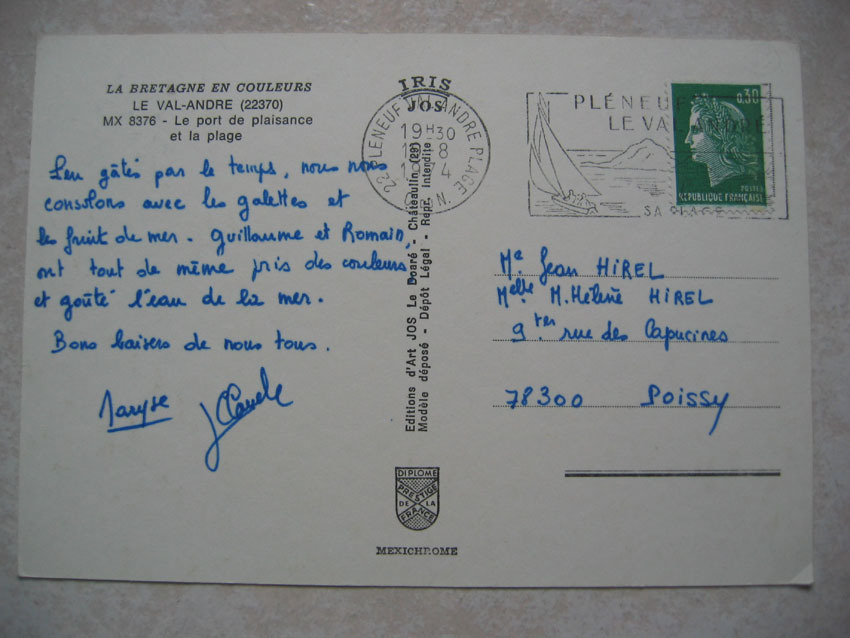 LA BRETAGNE EN COULEURS
LE VAL-ANDRE (22370)
MX 8376 - Le port de plaisance
et la plage
Peu gâtés par le temps, nous nous
consolons avec les galettes et
les fruit de mer. Guillaume et Romain,
ont tout de même pris des couleurs
et goûté l'eau de la mer.
Bons baisers de nous tous.
Maryse
J Claude
IRIS
JOS
22 PLENEUF VAL-ANDRE PLAGE
19H30
8
C. DU N.
Editions d'Art JOS Le Doaré - Châteaulin (29)
Modèle déposé - Dépôt Légal - Repr. Interdite
DIPLOME
PRESTIGE
DE LA
FRANCE
MEXICHROME
PLÉNEUF
LE VAL ANDRÉ
SA PLAGE
0,30
POSTES
REPUBLIQUE FRANÇAISE
Me Jean HIREL
Melle M. Hélène HIREL
9 ter rue des Capucines
78300 Poissy